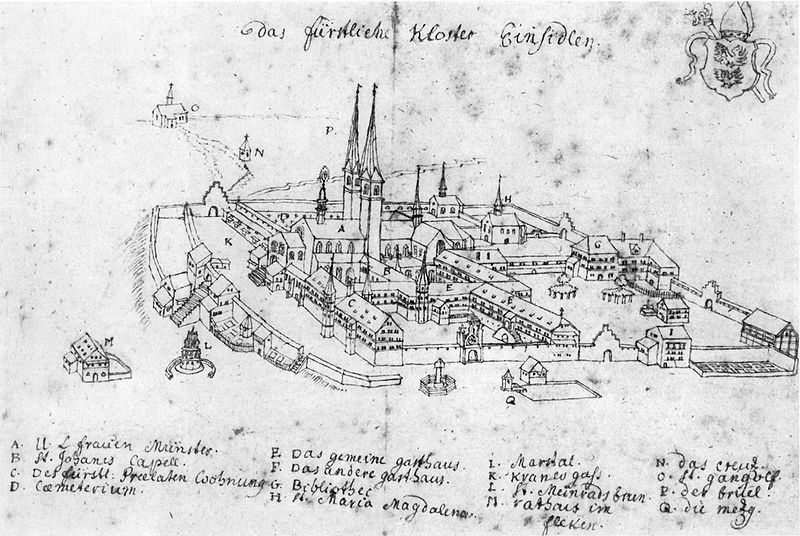 das fürstliche Kloster Einsidlen.
O
P
N
H
D
A
K
G
B
E
F
C
M
L
Q
A. U. L. frauen Münster.
B St. Johanes Capell.
C. Der fürstl. Preelaten Woohnung
D. Cœmeterium.
E. Das gemeine gasthaus.
F. Das andere gasthaus.
G. Bibliothec
H St. Maria Magdalena.
L. Marstal.
K. Kranes gass.
L St. Meinrats brun.
M. rathaus im
fleken.
N. das creuz.
O. St. gangolf
P. der brüel.
Q. die mezg.